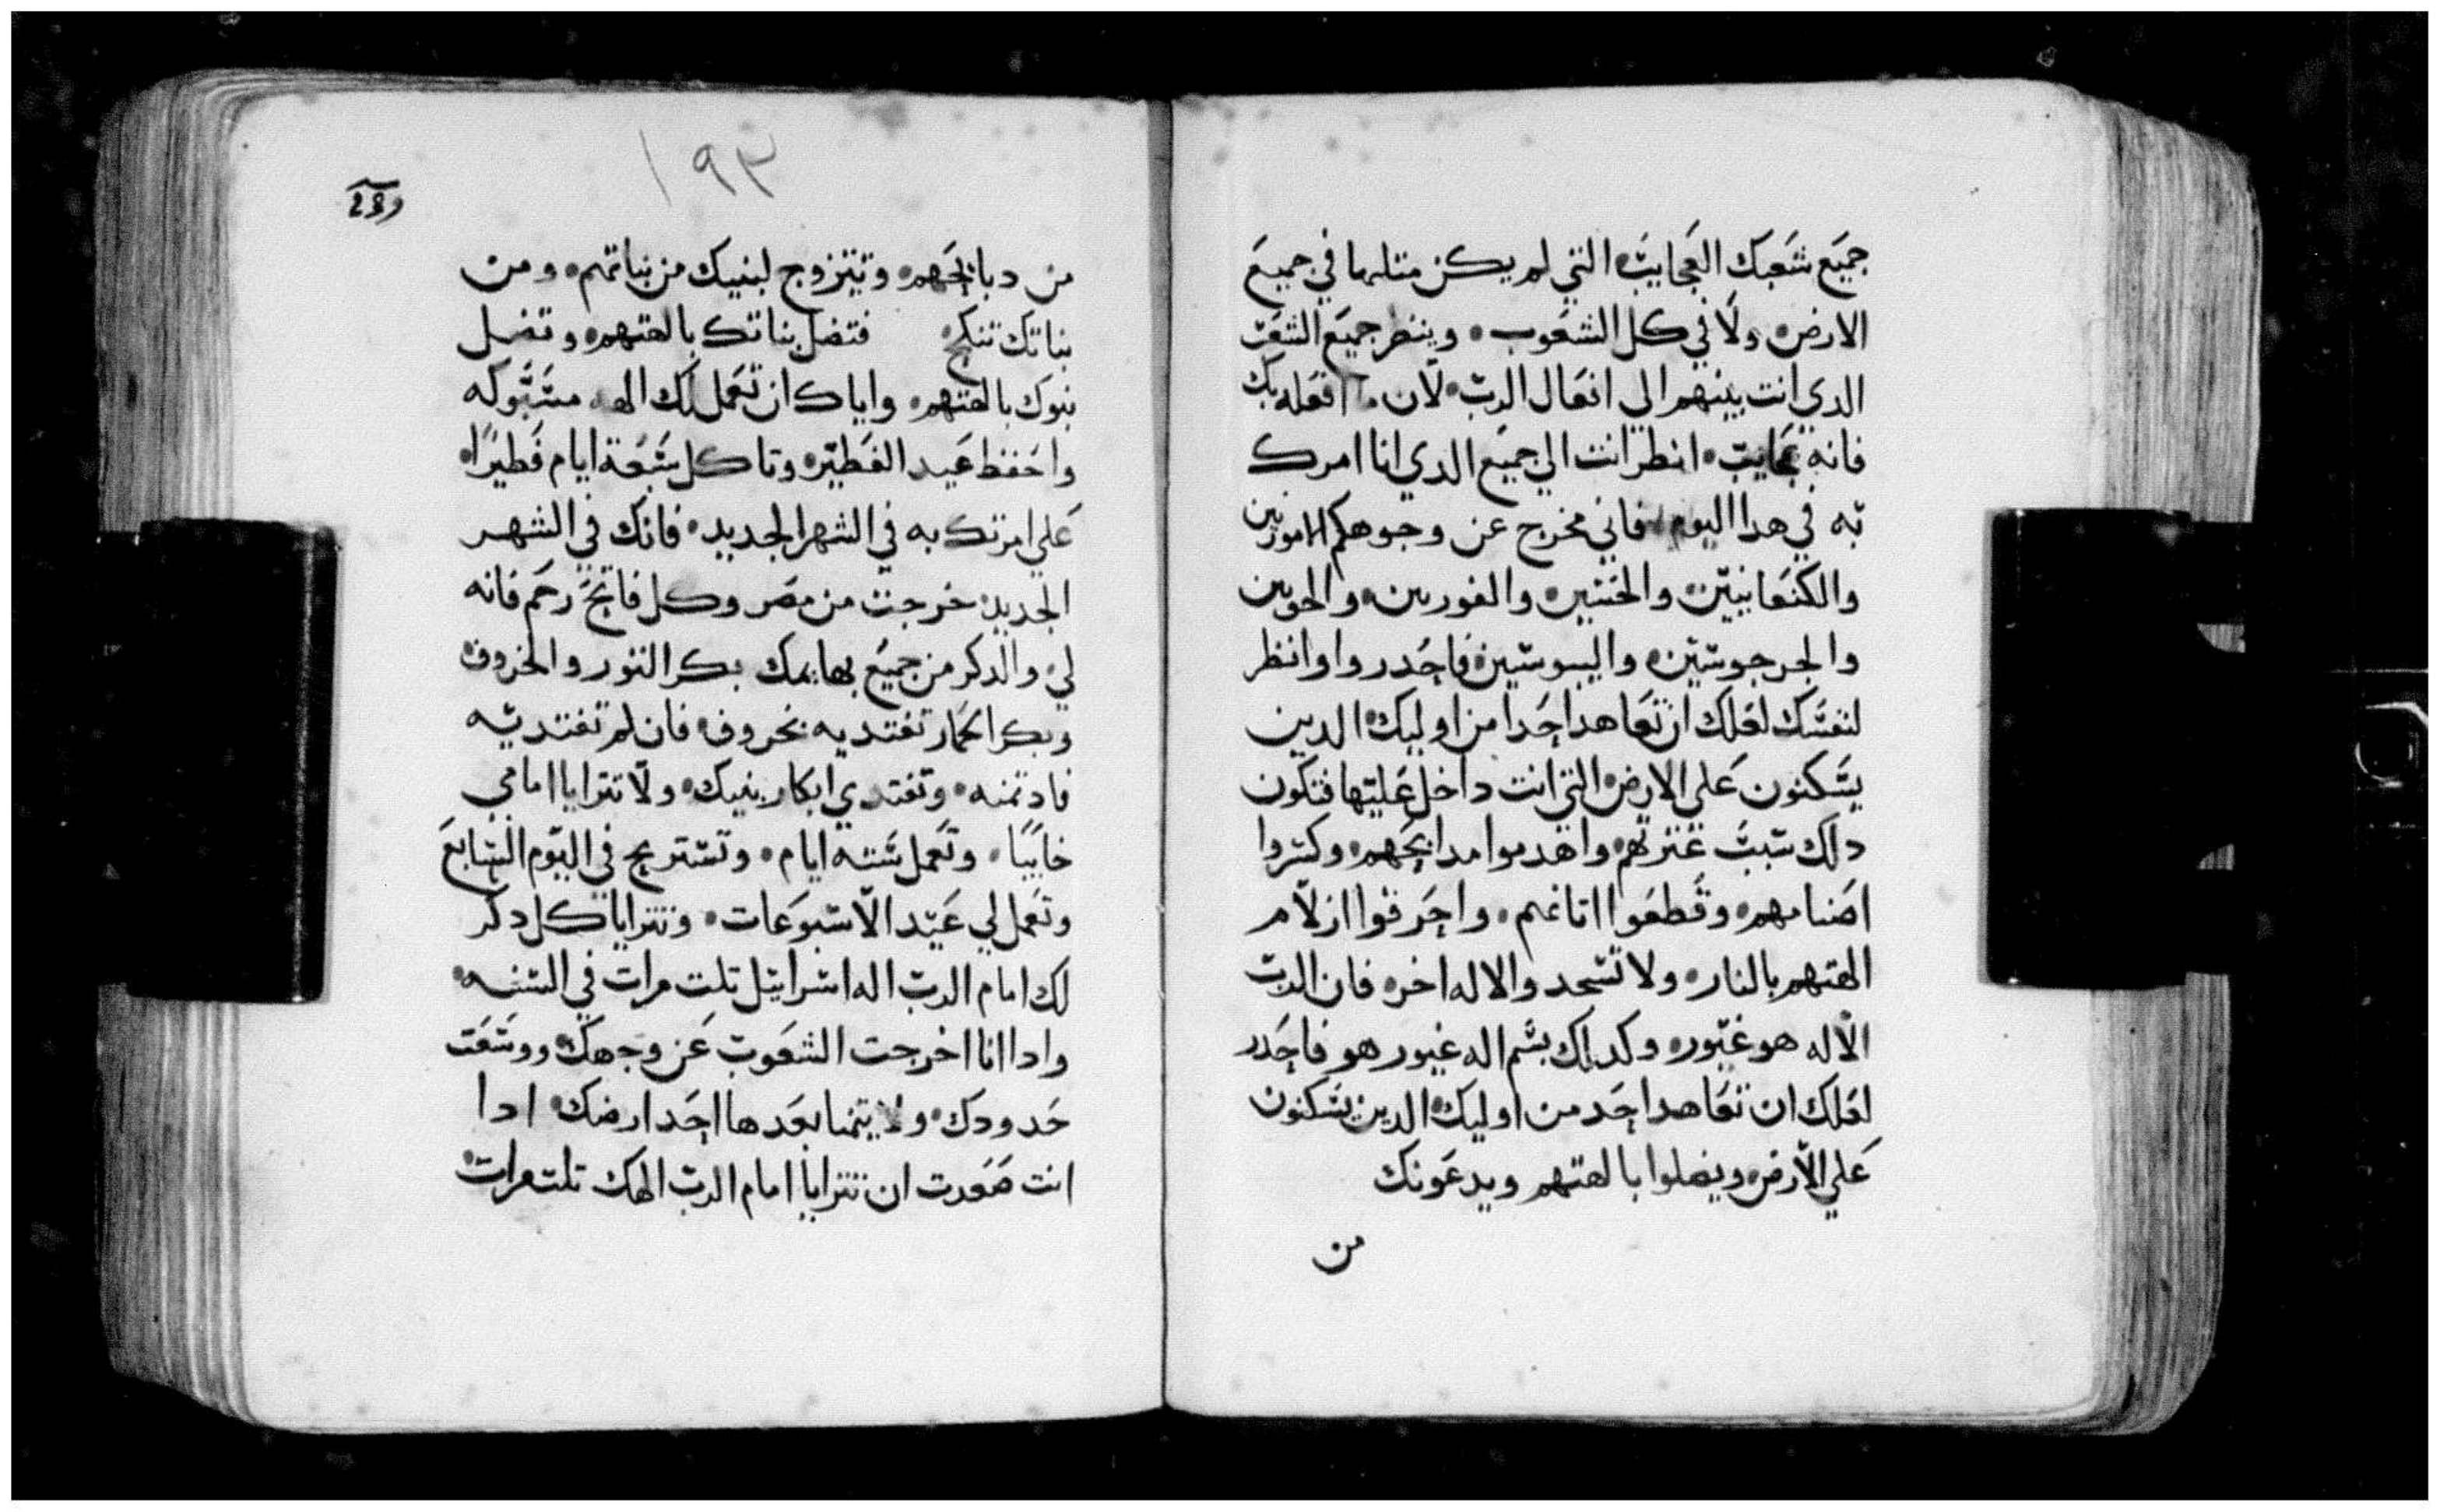 جميع شعبك العجايب التي لم يكن متلها في جميع
الارض ولا في كل الشعوب وينظر جميع الشعب
الدي انت بينهم الي افعال الرب لان ما افعله بك
فانه عجايب انظر انت الي جميع الدي انا امرك
به في هدا اليوم فاني مخرج عن وجوهكم الاموريين
والكنعانيين والحتيين والفوريين والحويين
والجرجوسيين واليبوسيين فاحدروا وانظر
لنفسك لعلك ان تعاهد احدا من اوليك الدين
يسكنون علي الارض التي انت داخل عليها فتكون
دلك سبب عترتهم واهدموا مدابحهم وكسروا
اصنامهم وقطعوا اتانهم واحرقوا ازلام
الهتهم بالنار ولا تسجدوا لاله اخر فان الرب
الاله هو غيور وكدلك بسم اله غيور هو فاحدر
لعلك ان تعاهد احد من اوليك الدين يسكنون
علي الارض ويضلوا بالهتهم ويدعونك
من
١٩٣
من دبايحهم وتتزوج لبنيك من بناتهم ومن
بناتك تنكح فتضل بناتك بالهتهم وتضل
بنوك بالهتهم واياك ان تعمل لك الهه مسبوكه
واحفظ عيد الفطير وتاكل سبعة ايام فطيرا
علي امرتك به في الشهر الجديد فانك في الشهر
الجديد خرجت من مصر وكل فاتح رحم فانه
لي والدكر من جميع بهايمك بكر التور والخروف
وبكر الحمار تفتديه بخروف فان لم تفتديه
فادتمنه وتفتدي ابكار بنيك ولا تترايا امامي
خاييا وتعمل ستة ايام وتستريح في اليوم السابع
وتعمل لي عيد الاسبوعات وتترايا كل دكر
لك امام الرب اله اسراييل تلت مرات في السنه
وادا انا اخرجت الشعوب عن وجهك ووسعت
حدودك ولا يتمنا بعدها احد ارضك ادا
انت صعدت ان تترايا امام الرب الهك تلت مرات